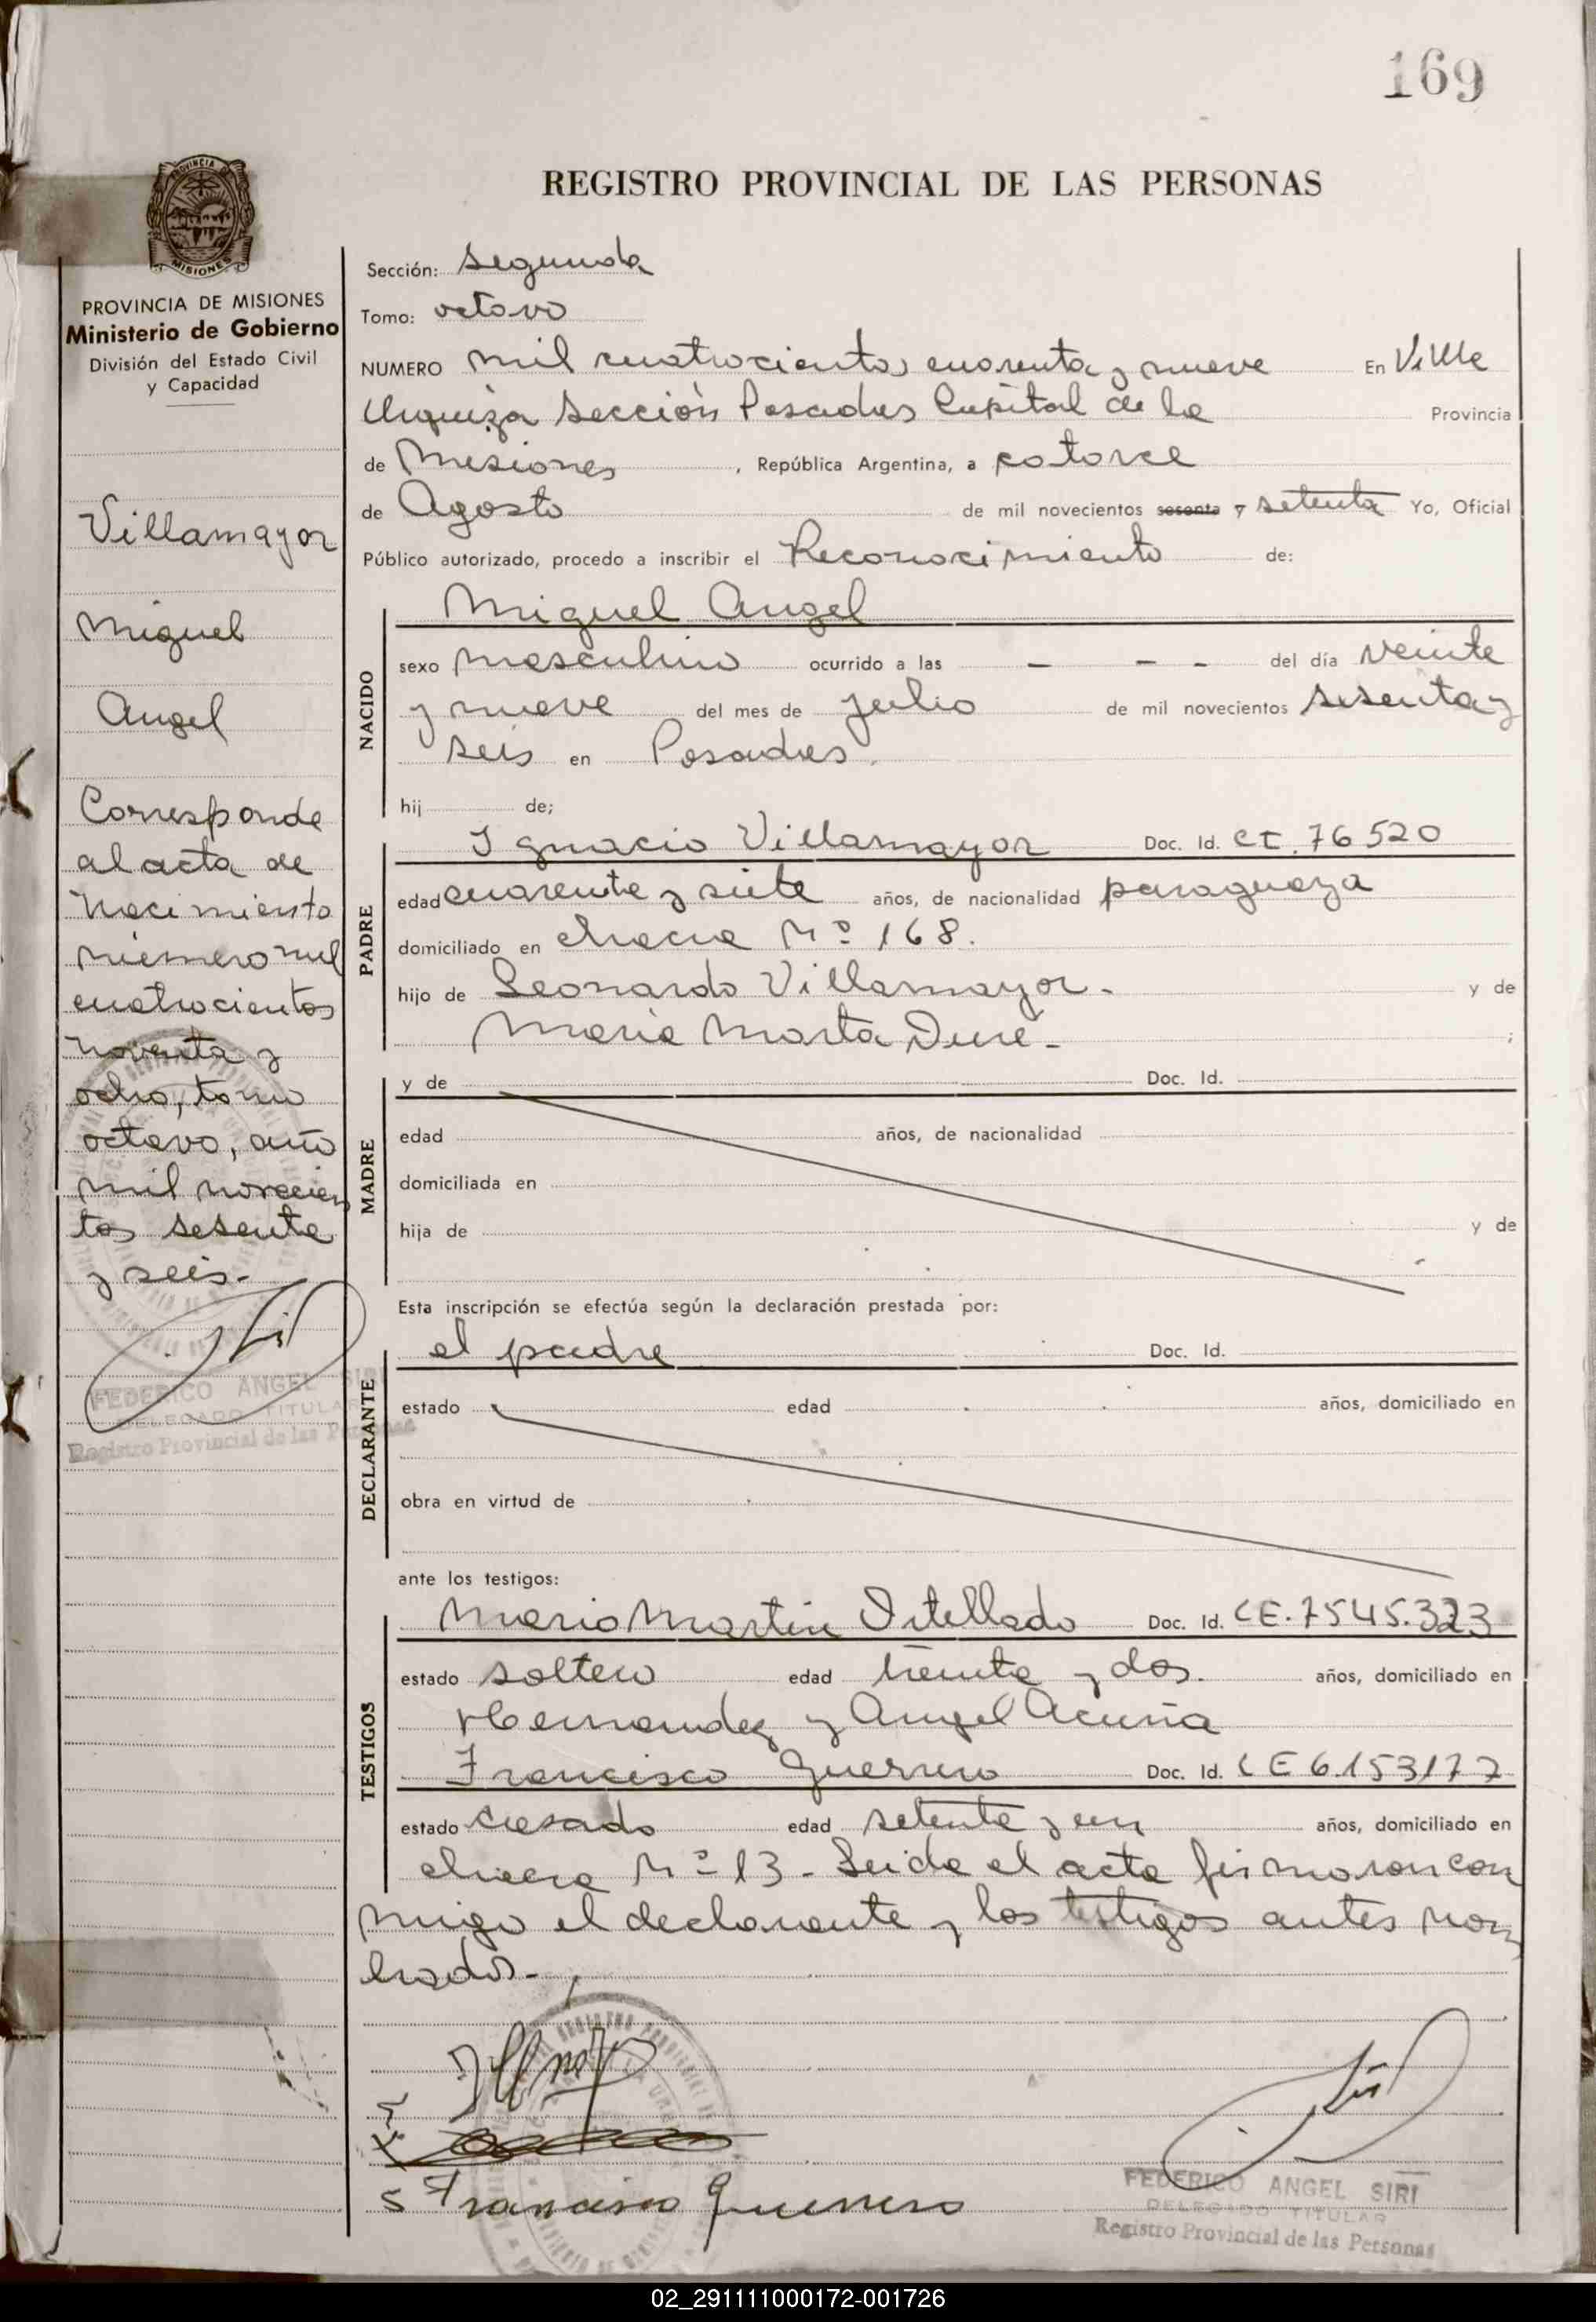 169
REGISTRO PROVINCIAL DE LAS PERSONAS
PROVINCIA
MISIONES
PROVINCIA DE MISIONES
Ministerio de Gobierno
División del Estado Civil
y Capacidad
Villamayor
Miguel
Angel
Corresponde
al acta de
Nacimiento
número mil
cuatrocientos
noventa y
ocho, tomo
octavo, año
mil novecien
tos sesenta
y seis.-
FEDERICO ANGEL SIRI
DELEGADO TITULAR
Registro Provincial de las Personas
Sección: Segunda
Tomo: octavo
NUMERO mil cuatrocientos cuarenta y nueve En Villa
Urquiza Sección Posadas Capital de la Provincia
de Misiones, República Argentina, a catorce
de Agosto de mil novecientos sesenta y setenta Yo, Oficial
Público autorizado, procedo a inscribir el Reconocimiento de:
NACIDO
Miguel Angel
sexo masculino ocurrido a las - - - del día veinte
y nueve del mes de julio de mil novecientos sesenta y
seis en Posadas.
hij de;
PADRE
Ignacio Villamayor Doc. Id. CI. 76520
edad cuarenta y siete años, de nacionalidad paraguaya
domiciliado en chacra Nº 168.
hijo de Leonardo Villamayor.- y de
Maria Marta Duré.- ;
MADRE
y de Doc. Id.
edad años, de nacionalidad
domiciliada en
hija de y de
Esta inscripción se efectúa según la declaración prestada por:
DECLARANTE
el padre Doc. Id.
estado edad años, domiciliado en
obra en virtud de
ante los testigos:
TESTIGOS
Mario Martin Doc. Id. LE. 7545.323
estado soltero edad treinta y dos. años, domiciliado en
Hernandez y Angel Acuña
Francisco Guerrero Doc. Id. LE 6.153177
estado casado edad setenta y un años, domiciliado en
chacra Nº 13.- Leida el acta firmaron con
migo el declarante y los testigos antes nom
brados.-
Francisco Guerrero
FEDERICO ANGEL SIRI
DELEGADO TITULAR
Registro Provincial de las Personas
02_291111000172-001726